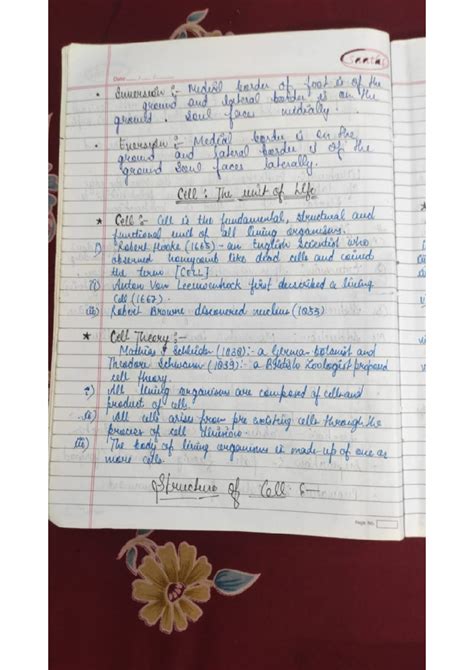 Saathi
Date
• Inversion :- Medial border of foot is of the
ground and lateral border is on the
ground. Soul faces medially.
• Eversion :- Medial border is on the
ground and lateral border is of the
ground Soul faces laterally.
Cell : The unit of Life
* Cell :- Cell is the fundamental, structural and
functional unit of all living organisms.
i) Robert Hooke (1665) - an English Scientist who
observed honeycomb like dead cells and coined
the term [CELL]
ii) Anton Van Leeuwenhock first described a living
cell (1667).
iii) Robert Browne discovered nucleus (1833)
* Cell Theory :-
Mathias Schleiden (1838) :- a German botanist and
Theodore Schwann (1839) :- a British Zoologist proposed
cell theory.
i) All living organism are composed of cells and
product of cells.
ii) All cells arises from pre existing cells through the
process of cell division
iii) The body of living organism is made up of one or
more cells.
Structure of Cell :-
Page No.